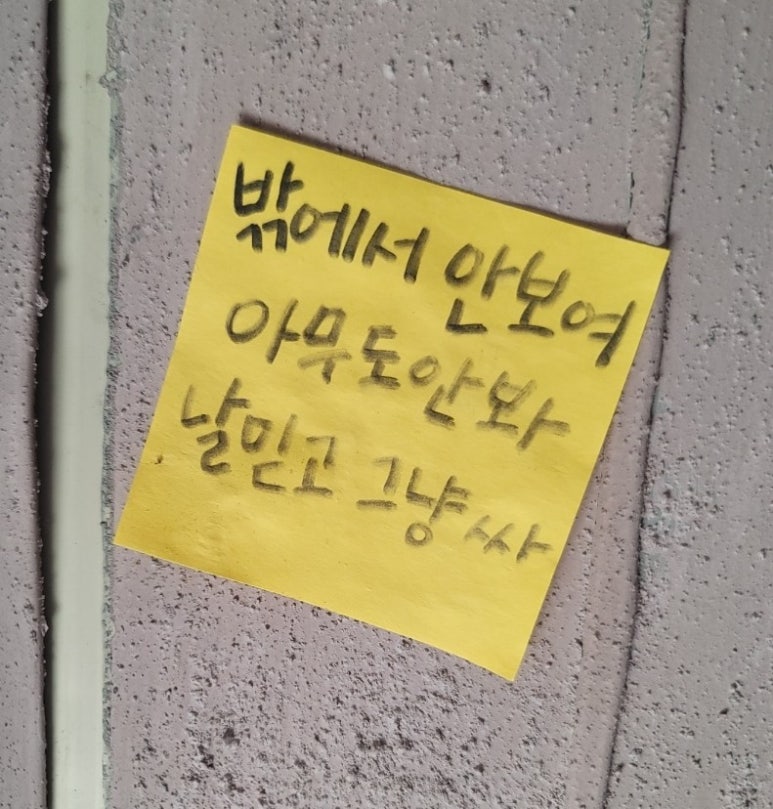 밖에서 안보여
아무도안봐
날믿고 그냥싸